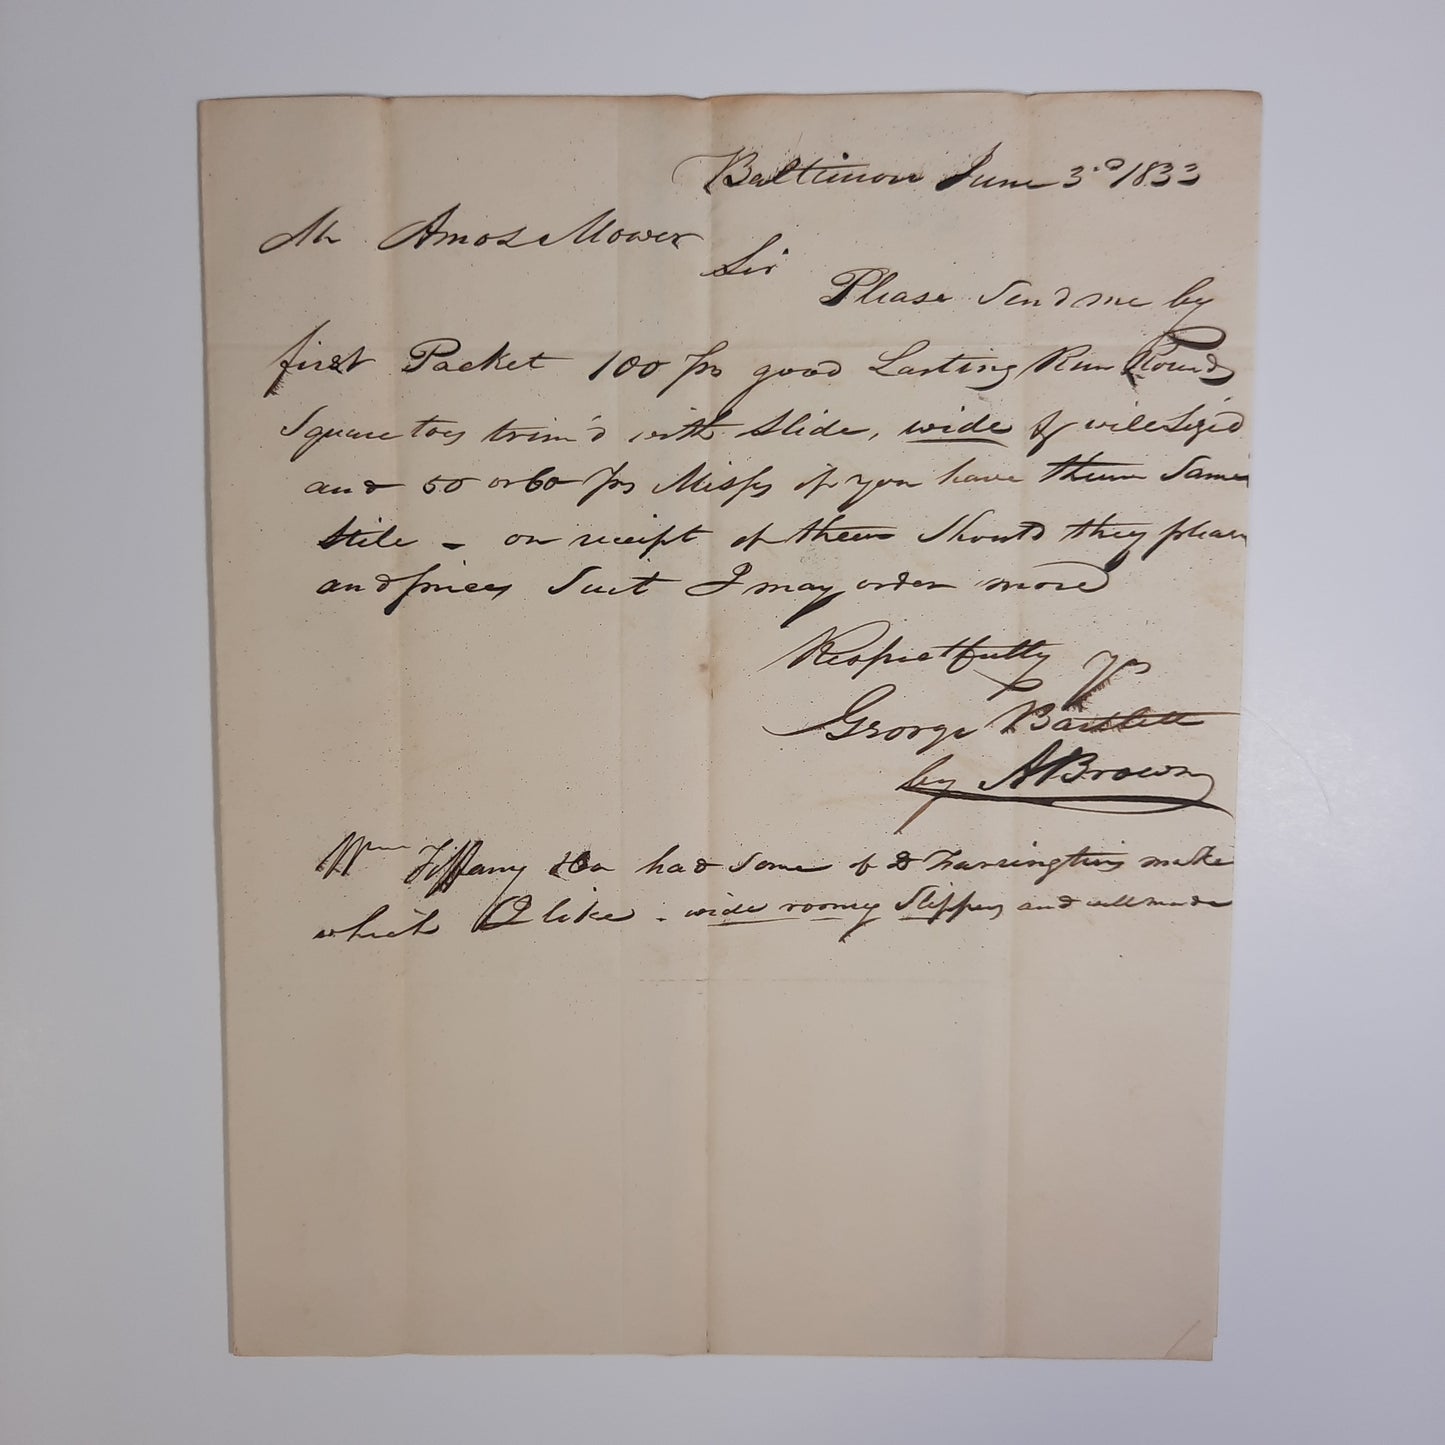 Baltimore June 3rd 1833
Mr Amos Mower
Sir
Please Send me by
first Packet 100 prs good Lasting Run Round
Square toes trim'd with Slide, wide & well Sized
and 50 or 60 prs Misses if you have them Same
Stile - on receipt of them Should they please
and prices Suit I may order more
Respectfully Yrs
George Bartlett
by A Brown
Wm Tiffany & Co had Some of D Harrington's make
which I like - wide roomy Slippers and well made